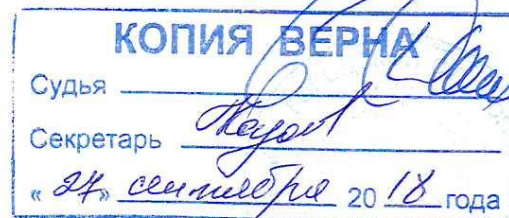 КОПИЯ ВЕРНА
Судья
Секретарь
«27» сентября 2018 года